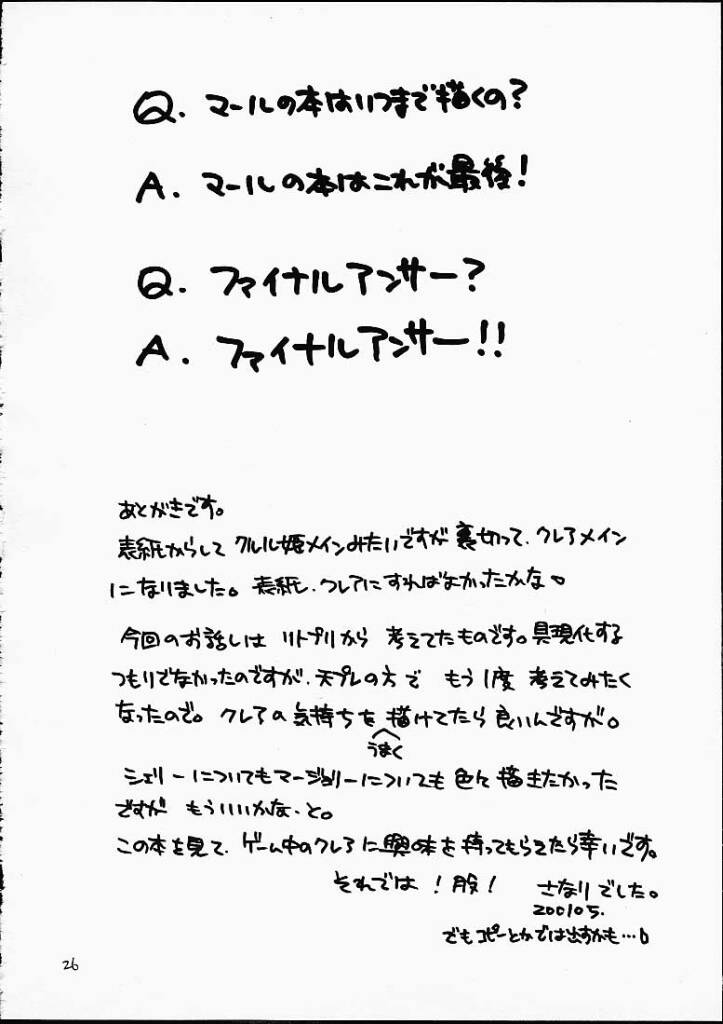 Q. マールの本はいつまで描くの?
A. マールの本はこれが最後!
Q. ファイナルアンサー?
A. ファイナルアンサー!!
あとがきです。
表紙からして クルル姫メインみたいですが 裏切って、クレアメイン
になりました。表紙、クレアにすればよかったかな。
今回のお話しは リトプリから 考えてたものです。具現化する
つもりでなかったのですが、天プレの方で もう1度 考えてみたく
なったので。クレアの気持ちを 描けてたら 良いんですが。
うまく
シェリーについてもマージョリーについても 色々 描きたかった
ですが もういいかな、と。
この本を見て、ゲーム中のクレアに興味を持ってもらえたら幸いです。
それでは!股! さなりでした。
200105.
でもコピーとかでは出すかも…
26